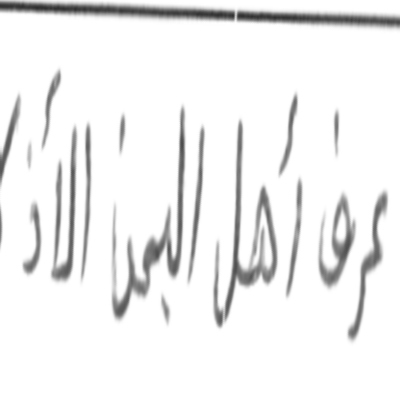 عرف أهل اليمن الأذ